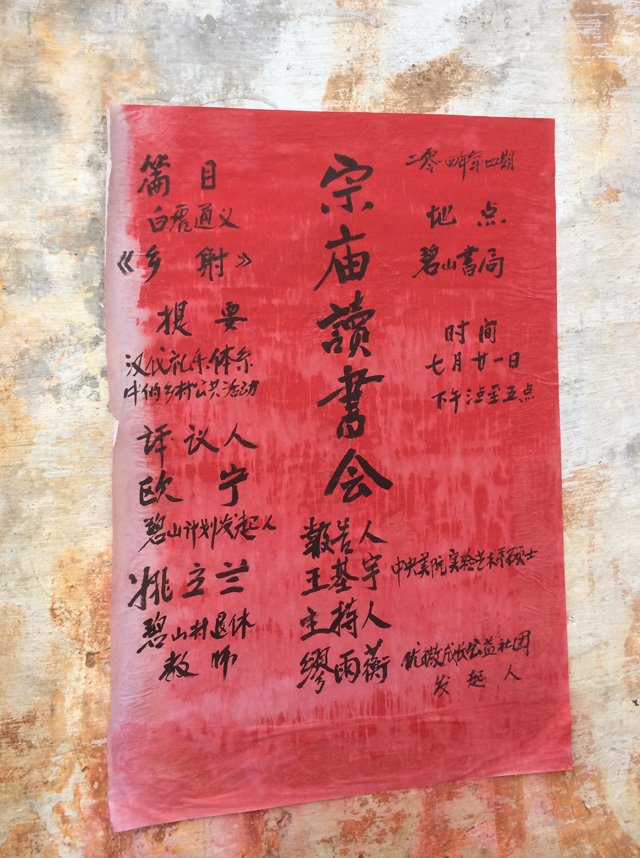 宗庙讀書会
二零一四年第四期
地点
碧山書局
时间
七月廿一日
下午 至五点
篇目
白虎通义
《乡射》
提要
汉代礼乐体系
中的乡村公共活动
评议人
欧宁
碧山计划发起人
姚立兰
碧山村退休
教师
報告人
王基宇 中央美院实验艺术系硕士
主持人
缪雨蘅 成长公益社团
发起人